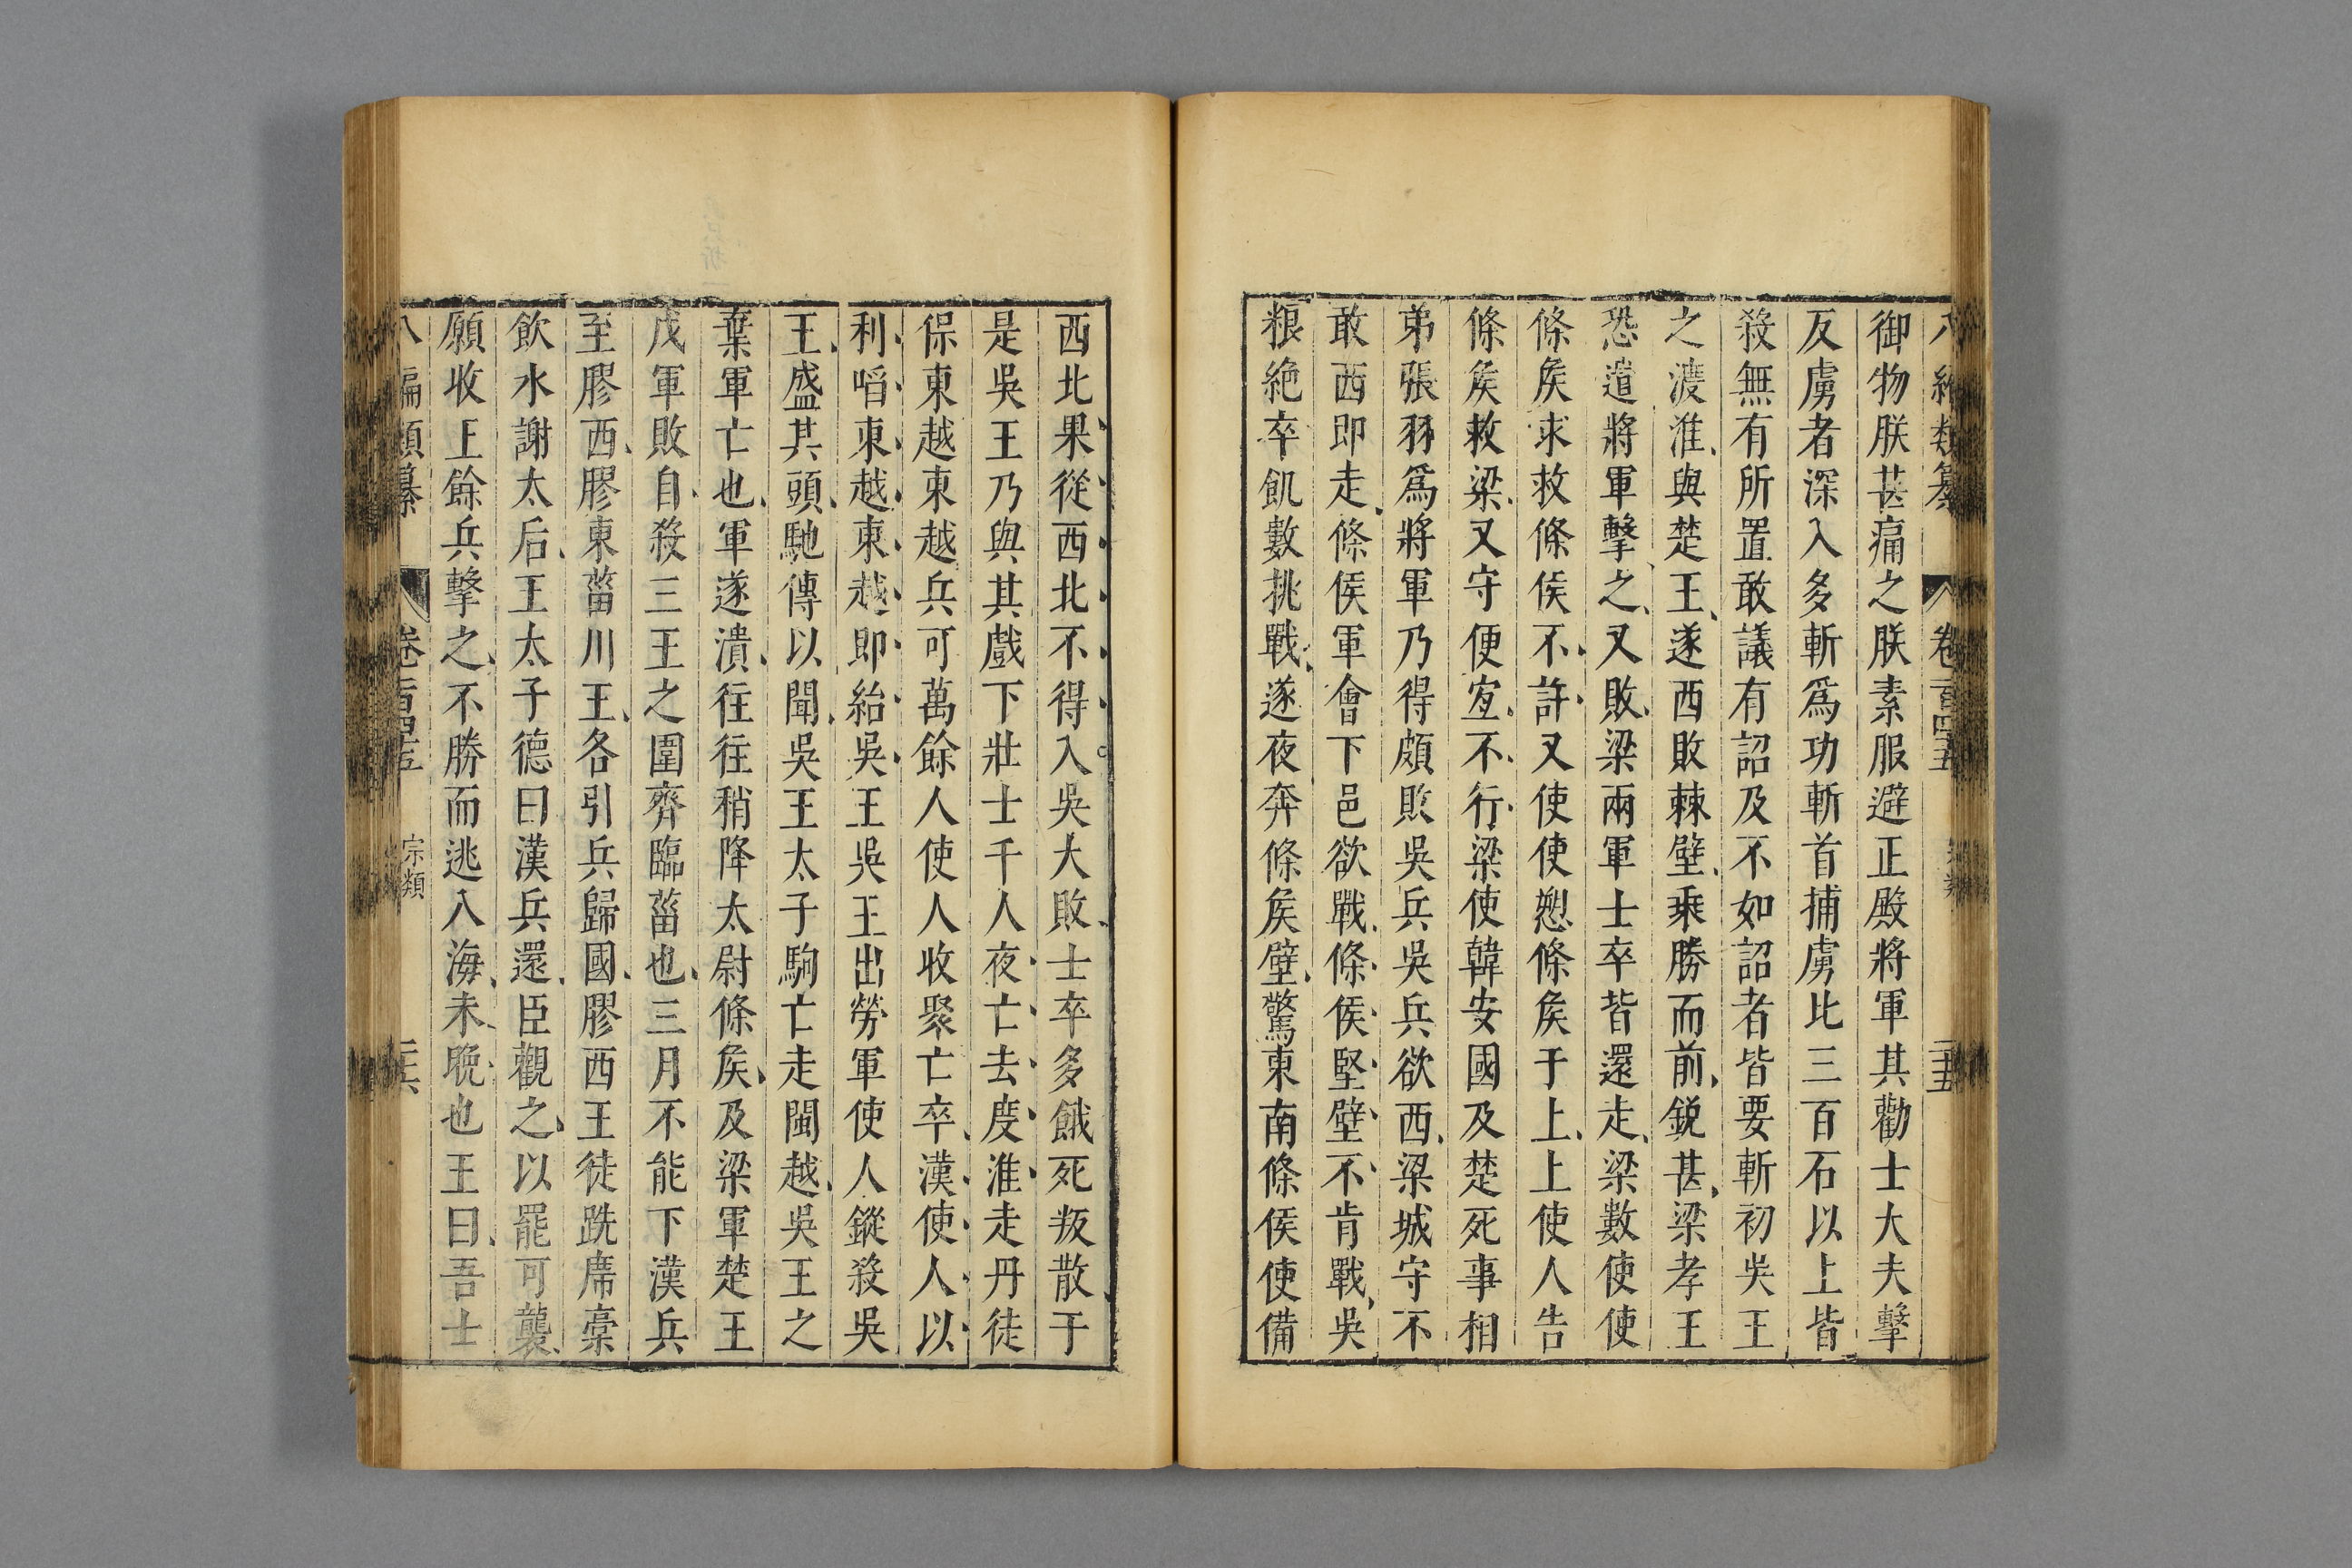 八編類纂 卷一百四五 宗類 二十五
御物朕甚痛之朕素服避正殿將軍其勸士大夫擊
反虜者深入多斬爲功斬首捕虜比三百石以上皆
殺無有所置敢議有詔及不如詔者皆要斬初吳王
之渡淮與楚王遂西敗棘壁乘勝而前銳甚梁孝王
恐遣將軍擊之又敗梁兩軍士卒皆還走梁數使使
條矦求救條侯不許又使使愬條矦于上上使人告
條矦救梁又守便宐不行梁使韓安國及楚死事相
弟張羽爲將軍乃得頗敗吳兵吳兵欲西梁城守不
敢西即走條侯軍會下邑欲戰條侯堅壁不肯戰吳
粮絶卒飢數挑戰遂夜奔條矦壁驚東南條侯使備
西北果從西北不得入吳大敗士卒多餓死叛散于
是吳王乃與其戲下壯士千人夜亡去度淮走丹徒
保東越東越兵可萬餘人使人收聚亡卒漢使人以
利啗東越東越即紿吳王吳王出勞軍使人鏦殺吳
王盛其頭馳傳以聞吳王太子駒亡走閩越吳王之
棄軍亡也軍遂潰往往稍降太尉條矦及梁軍楚王
戊軍敗自殺三王之圍齊臨菑也三月不能下漢兵
至膠西膠東菑川王各引兵歸國膠西王徒跣席稾
飲水謝太后王太子德曰漢兵還臣觀之以罷可襲
願收王餘兵擊之不勝而逃入海未晚也王曰吾士
八編類纂 卷一百四五 宗類 二十六